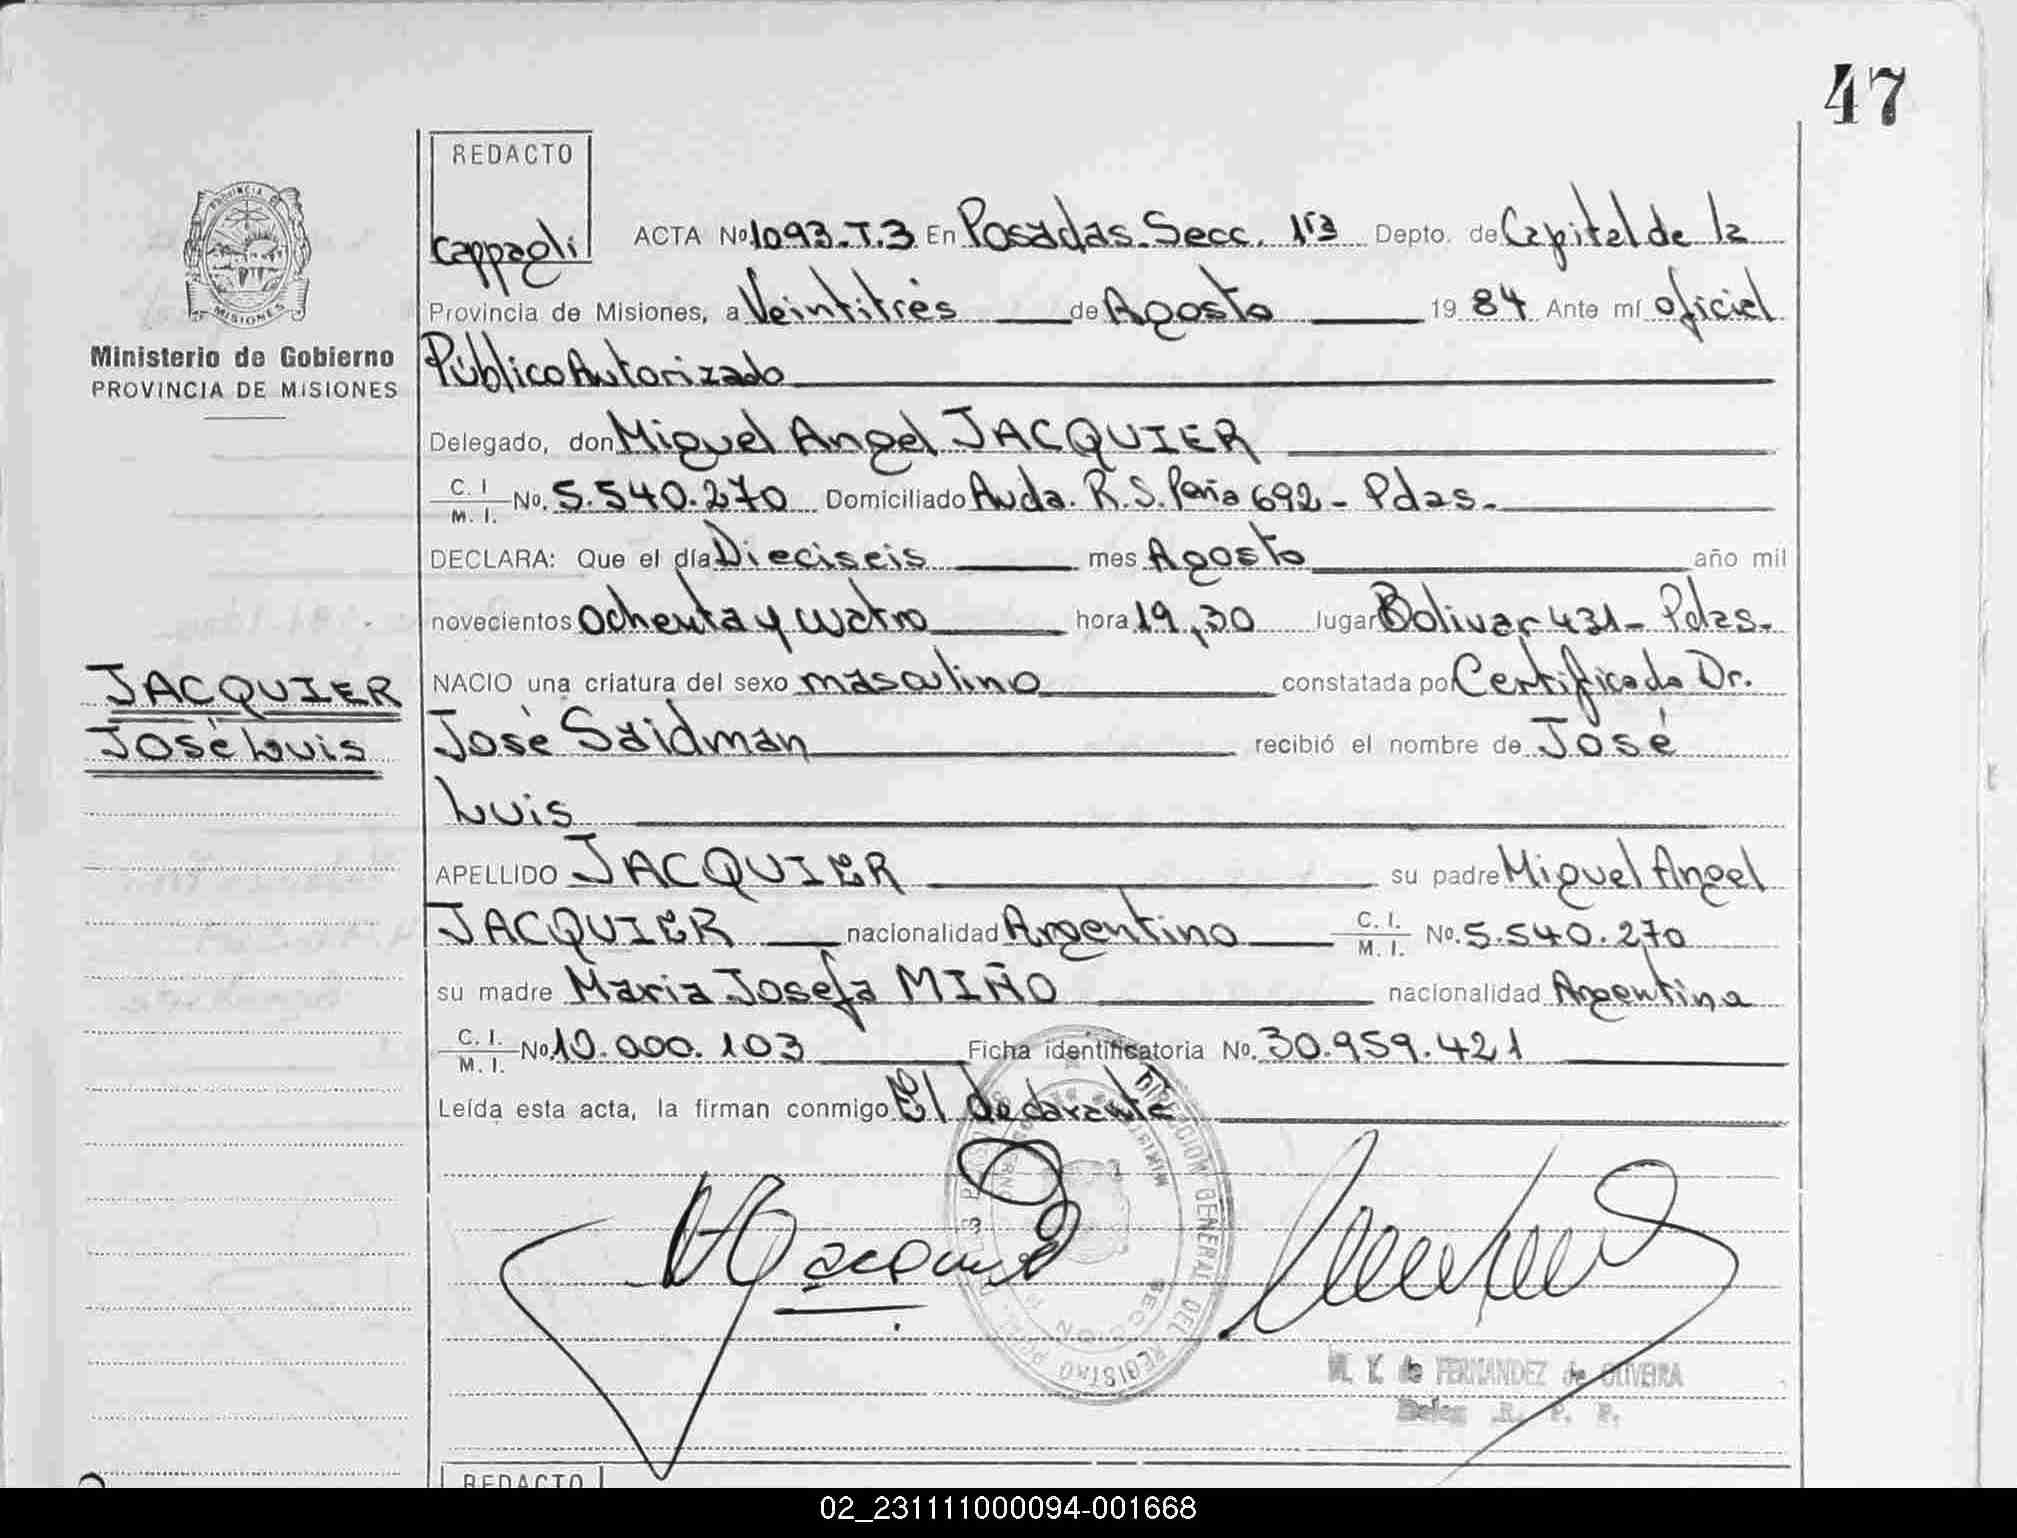 47
REDACTO
Cappagli
ACTA Nº 1093-T.3 En Posadas. Secc. 1ra Depto. de Capital de la
Provincia de Misiones, a Veintitrés de Agosto 19 84 Ante mí oficial
Público Autorizado
Delegado, don Miguel Angel JACQUIER
C. I. M. I. No. 5.540.270 Domiciliado Avda. R.S. Peña 692 - Pdas.
DECLARA: Que el día Dieciseis mes Agosto año mil
novecientos ochenta y cuatro hora 19,30 lugar Bolivar 431 - Pdas.
NACIO una criatura del sexo masculino constatada por Certificado Dr.
José Saidman recibió el nombre de José
Luis
APELLIDO JACQUIER su padre Miguel Angel
JACQUIER nacionalidad Argentino C. I. M. I. No. 5.540.270
su madre Maria Josefa MIÑO nacionalidad Argentina
C. I. M. I. No 10.000.103 Ficha identificatoria No. 30.959.421
Leída esta acta, la firman conmigo El declarante
PROVINCIA DE
MISIONES
Ministerio de Gobierno
PROVINCIA DE MISIONES
JACQUIER
José Luis
DIRECCION GENERAL DEL REGISTRO
SECCION
M. de FERNANDEZ de OLIVEIRA
R. P. P.
REDACTO
02_231111000094-001668